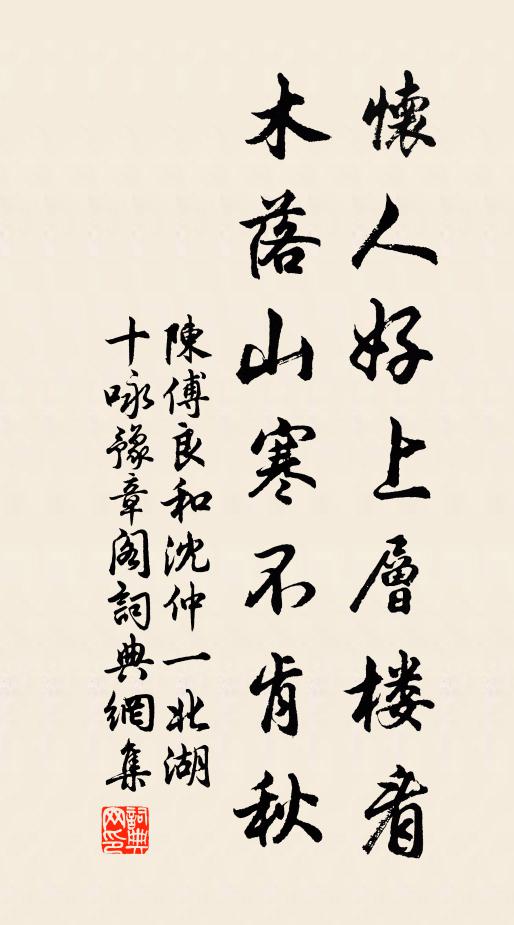 懷人好上層楼看
木落山寒不肯秋
陳傅良和沈仲一北湖
十咏豫章閣詞典網集
詞典
网印